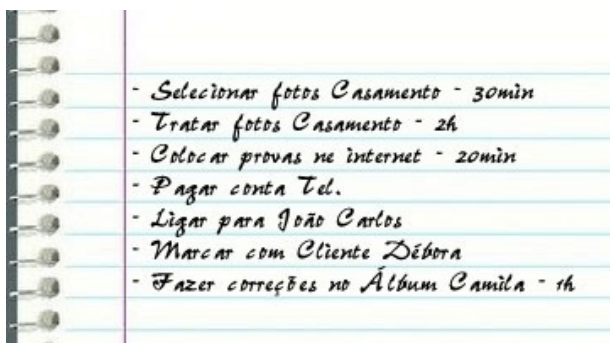 - Selecionar fotos Casamento - 30min
- Tratar fotos Casamento - 2h
- Colocar provas ne internet - 20min
- Pagar conta Tel.
- Ligar para João Carlos
- Marcar com Cliente Débora
- Fazer correções no Álbum Camila - 1h